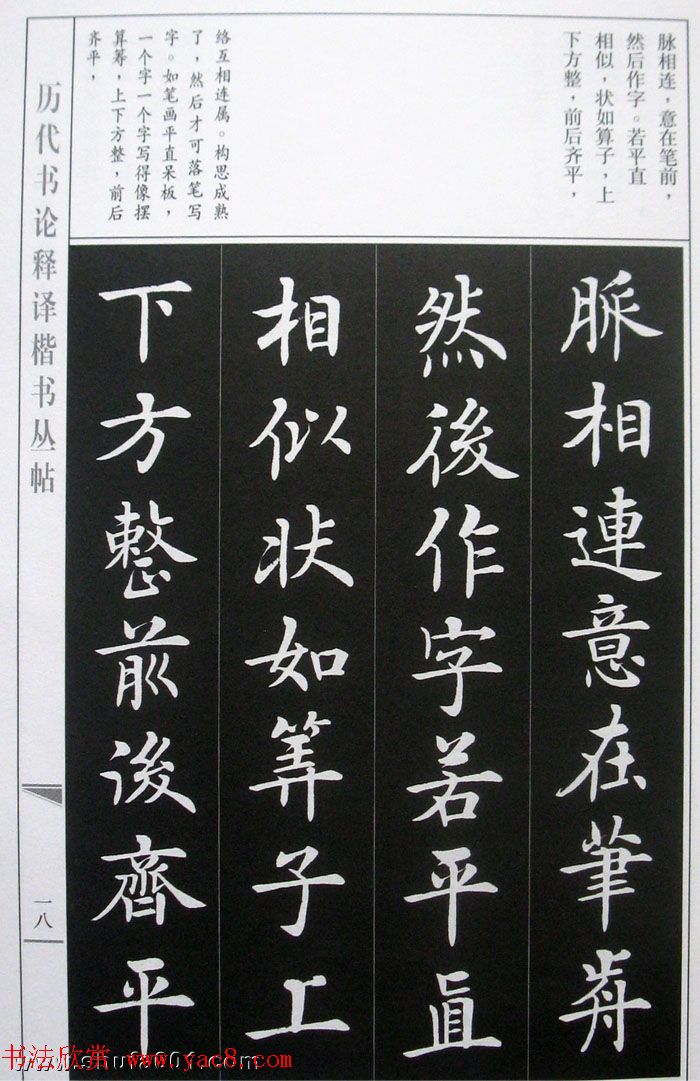 脉相连，意在笔前，
然后作字。若平直
相似，状如算子，上
下方整，前后齐平，
络互相连属。构思成熟
了，然后才可落笔写
字。如笔画平直呆板，
一个字一个字写得像摆
算筹，上下方整，前后
齐平，
脈相連意在筆歬
然後作字若平直
相似状如筭子上
下方整前後齊平
历代书论释译楷书丛帖
一八
书法欣赏 www.yac8.com